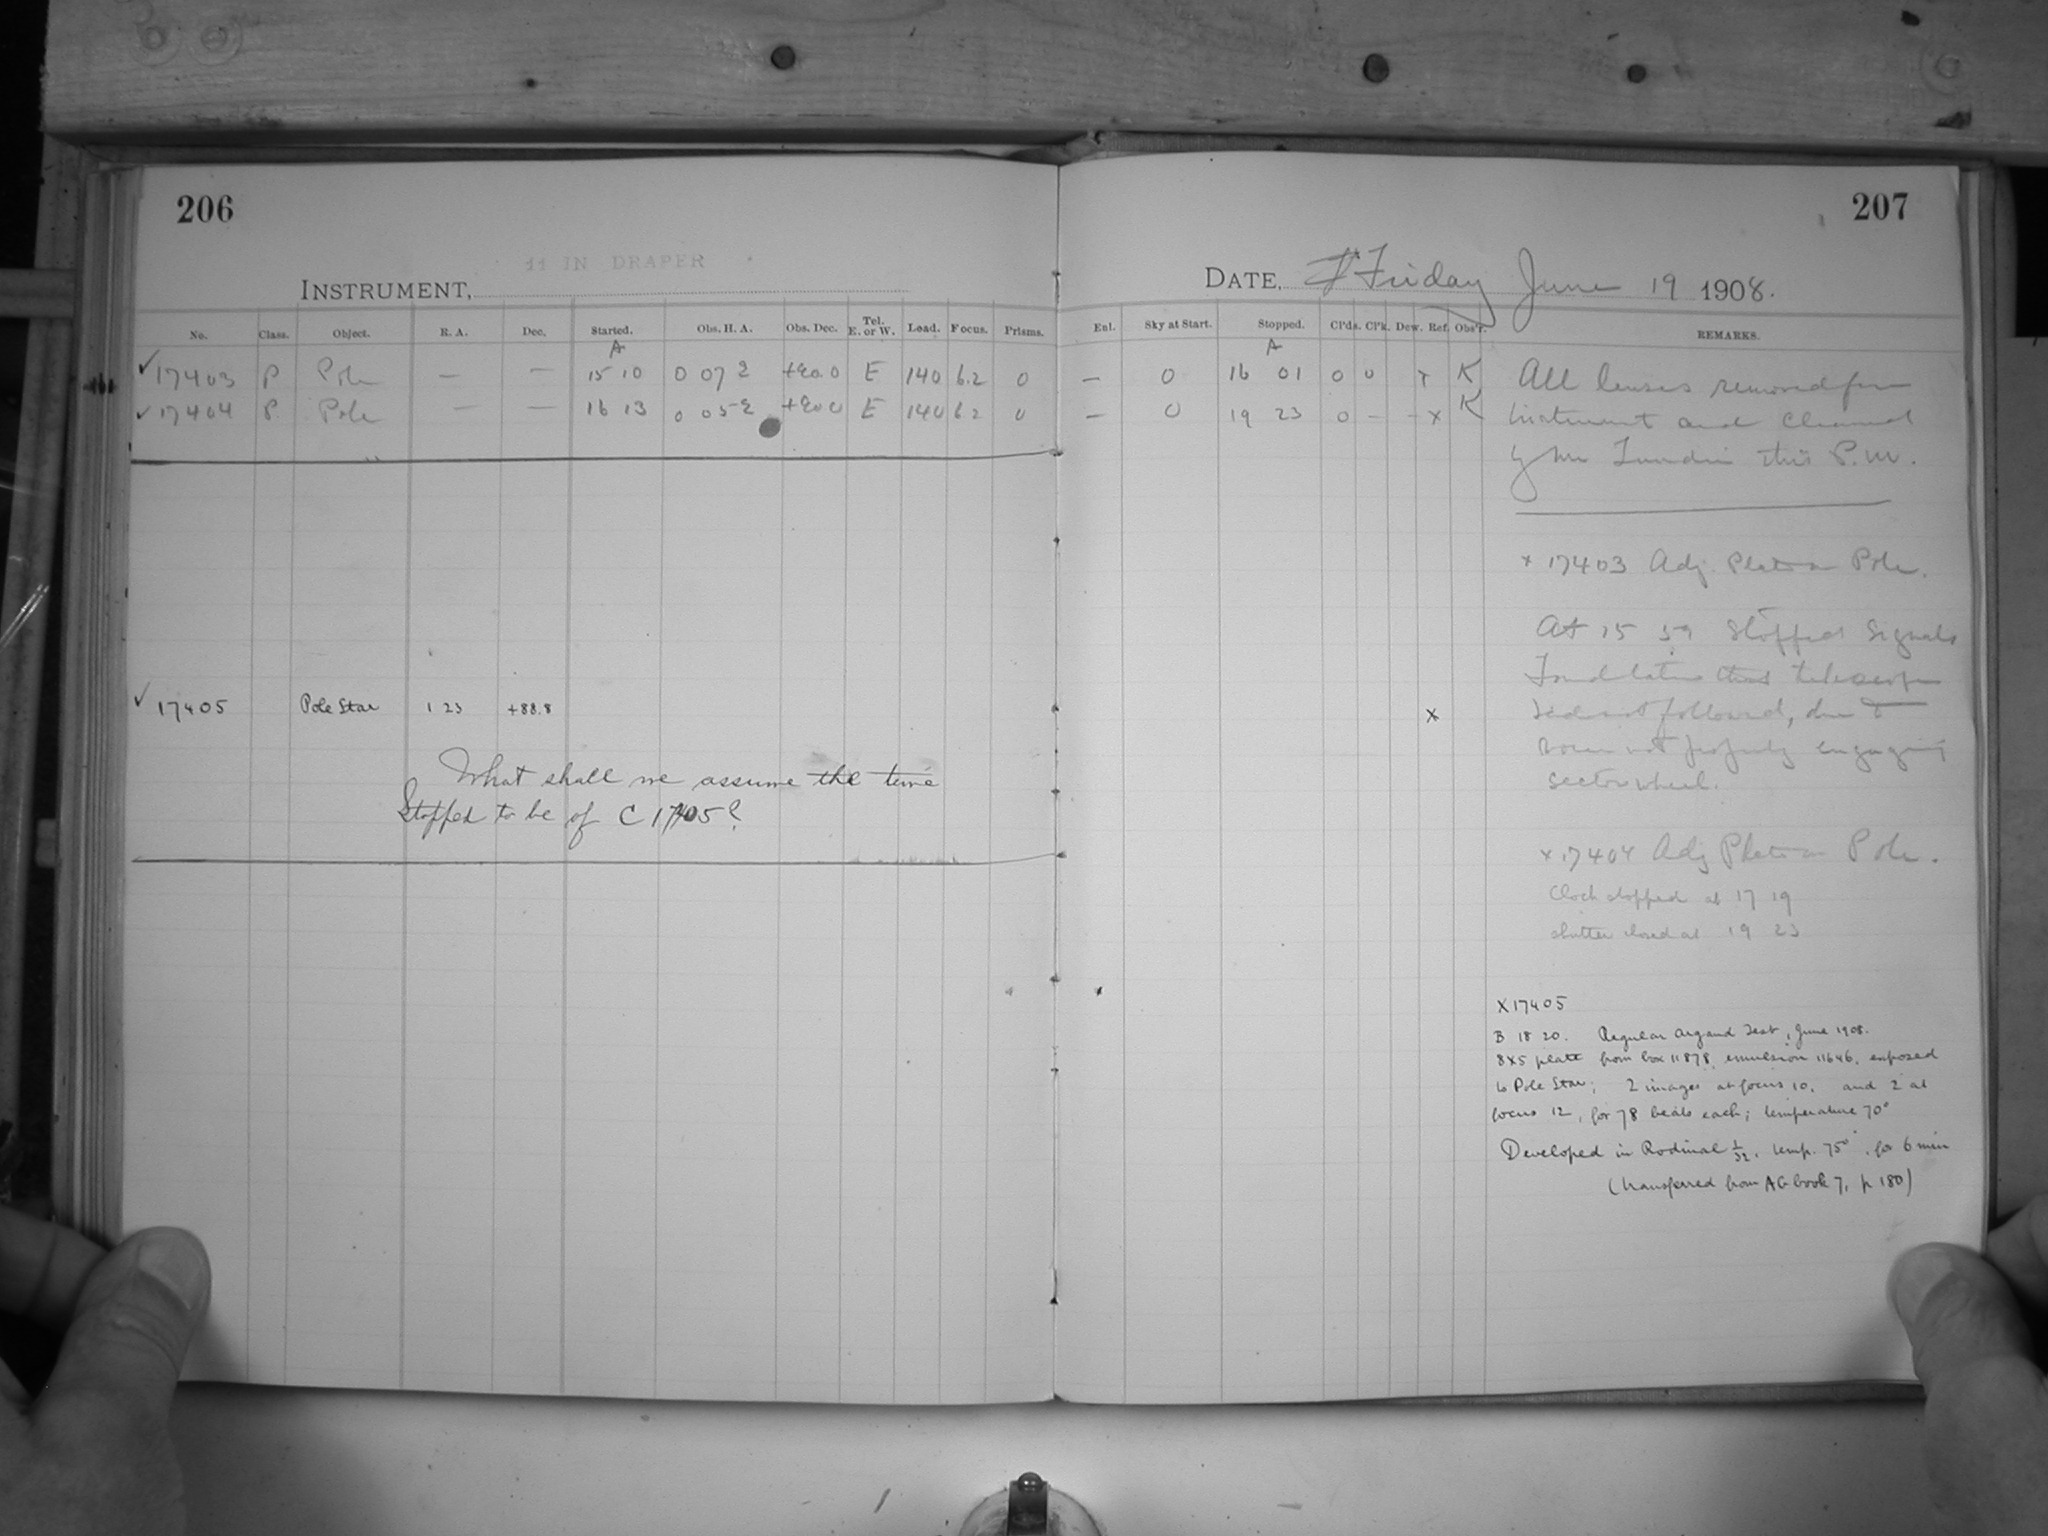 206
207
11 IN DRAPER
INSTRUMENT,
DATE, Friday June 19 1908.
No. Class. Object. R. A. Dec. Started. Obs. H. A. Obs. Dec. Tel. E. or W. Load. Focus. Prisms. Enl. Sky at Start. Stopped. Cl'ds. Cl'k. Dew. Ref. Obs'r. REMARKS.
A A
✓ 17403 P Pole — — 15 10 0 07 E +90.0 E 140 6.2 0 — 0 16 01 0 0 x K
✓ 17404 P Pole — — 16 13 0 05 E +90.0 E 140 6.2 0 — 0 19 23 0 — - x K
All lenses removed from
instrument and cleaned
by Mr Lundin this P.M.
x 17403 Adj. Plate on Pole.
At 15 59 stopped signals
Found later that telescope
had not followed, due to
not properly engaging
sector wheel.
✓ 17405 Pole Star 1 23 +88.8 x
What shall we assume the time
Stopped to be of C 17405?
x 17404 Adj Plate on Pole.
Clock stopped at 17 19
shutter closed at 19 23
X 17405
B 18 20. Regular Argand Test, June 1908.
8x5 plate from box 11878, emulsion 11646, exposed
to Pole Star; 2 images at focus 10, and 2 at
focus 12, for 78 beats each; temperature 70°
Developed in Rodinal 1/32, temp. 75°, for 6 min
(transferred from AG book 7, p 180)